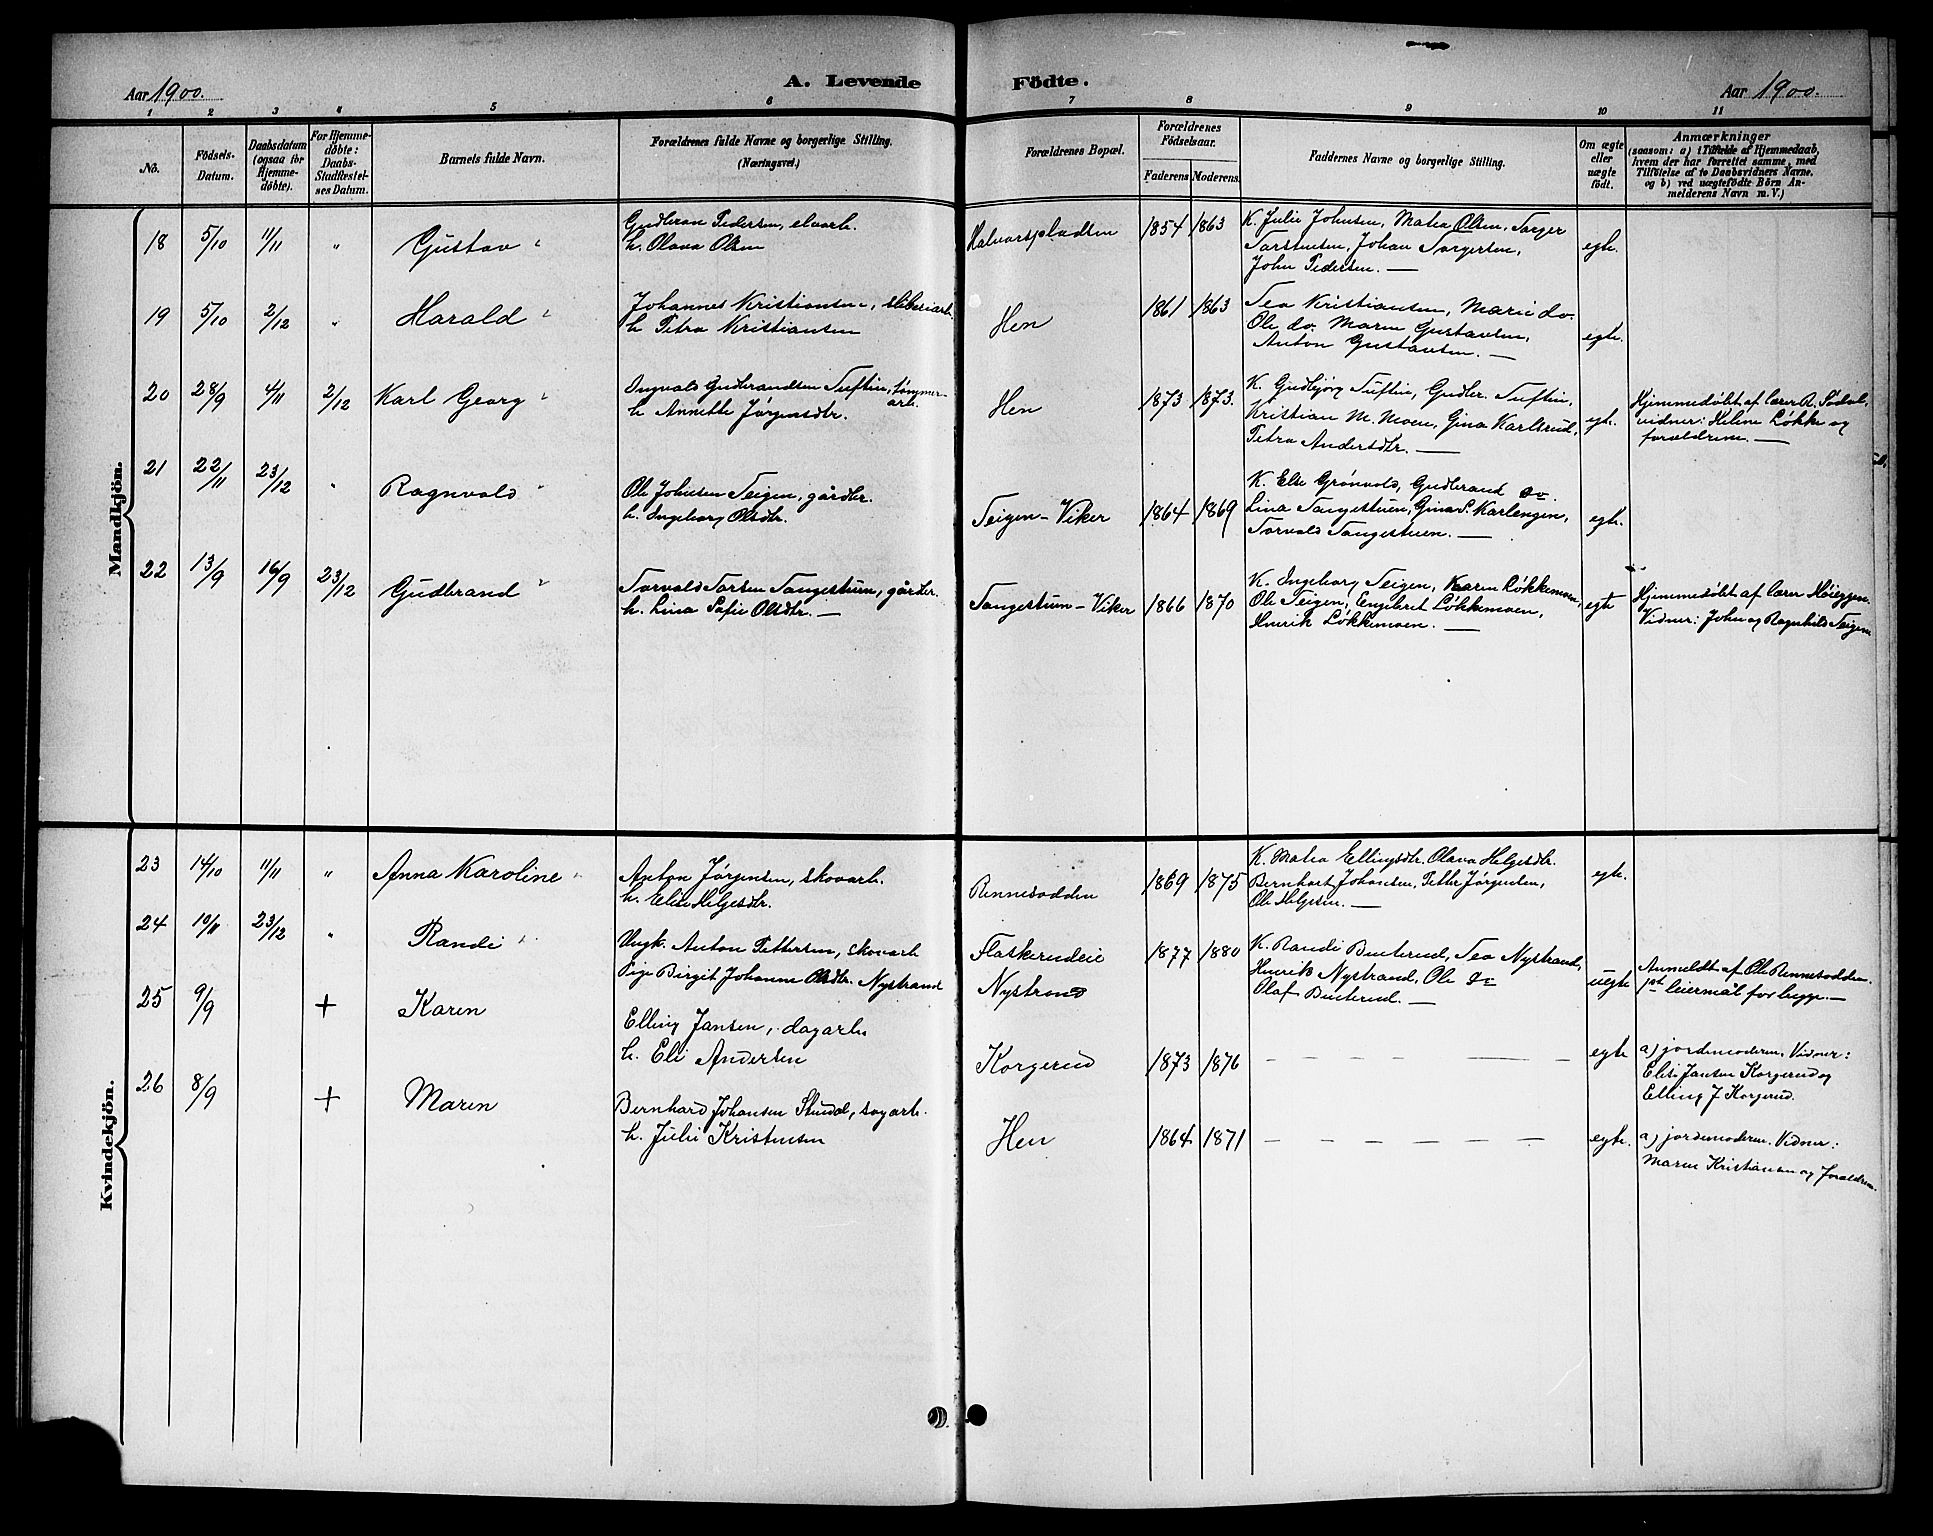 Aar 1900.
A. Levende Födte.
Aar 1900.
1 2 3 4 5 6 7 8 9 10 11
No.
Födsels-
Datum.
Daabsdatum
(ogsaa for
Hjemme-
döbte).
For Hjemme-
döbte:
Daabs-
Stadfæstel-
ses Datum.
Barnets fulde Navn.
Forældrenes fulde Navne og borgerlige Stilling.
(Næringsvei.)
Forældrenes Bopæl.
Forældrenes
Födselsaar.
Faderens Moderens.
Faddernes Navne og borgerlige Stilling.
Om ægte
eller
uægte
födt.
Anmærkninger
(saasom: a) i Tilfælde af Hjemmedaab,
hvem der har forrettet samme, med
Tilföielse af to Daabsvidners Navne,
og b) ved uægtefödte Börn An-
melderens Navn m. V.)
Mandkjön.
18 5/10 11/11 " Gustav
Gudbran Pedersen, elvarb.
h. Olava Olsen
Halvorspladsen 1854 1863
K. Julie Johnsen, Matea Olsen, Torger
Torstensen, Johan Torgersen,
John Pedersen. —
egte.
19 5/10 2/12 " Harald
Johannes Kristiansen, sliberiarb.
h. Petra Kristiansen
Hen 1861 1863
Tea Kristiansen, Marie do.
Ole do. Maren Gustavsen,
Anton Gustavsen. —
egte.
20 28/9 4/11 2/12 Karl Georg
Ingvald Gudbrandsen Tuftin, tømmer-
arb.
h. Annette Jørgensdtr.
Hen 1873 1873.
K. Gudbjørg Tuftin, Gudbr. Tuftin,
Kristian M. Moen, Gina Karlsrud,
Petra Andersdtr. —
egte.
Hjemmedøbt af lærer A. Sødal,
vidner: Helene Løkke og
forældrene. —
21 22/11 23/12 " Ragnvald
Ole Johnsen Teigen, gårdbr.
h. Ingeborg Olsdtr.
Teigen-Viker 1864 1869
K. Else Grønvold, Gudbrand do.
Lina Tangestuen, Gina S. Karlengen,
Torvald Tangestuen. —
egte.
22 13/9 16/9 23/12 Gudbrand
Torvald Torsen Tangestuen, gårdbr.
h. Lina Sofie Olsdtr. —
Tangestuen-Viker 1866 1870
K. Ingeborg Teigen, Karen Løkkemoen,
Ole Teigen, Engebret Løkkemoen,
Henrik Løkkemoen. —
egte
Hjemmedøbt af lærer Høieggen.
Vidner: John og Ragnhild Teigen
Kvindekjön.
23 14/10 11/11 " Anna Karoline
Anton Jørgensen, skovarb.
h. Elise Helgesdtr.
Rennesodden 1869 1875
K. Matea Ellingsdtr. Olava Helgesdtr.
Bernhart Johansen, Petter Jørgensen,
Ole Helgesen. —
egte.
24 10/11 23/12 " Randi
Ungk. Anton Pettersen, skovarb
Pige Birgit Johanne Olsdtr. Nystrand
Flaskerudeie
Nystrand
1877 1880
K. Randi Buterud, Tea Nystrand,
Henrik Nystrand, Ole do
Olaf Buterud. —
uegte
Anmeldt af Ole Rennesodden.
1st leiermål for begge. —
25 9/9 + Karen
Elling Jansen, dagarb.
h. Eli Andersen
Korgerud 1873 1876
— — — — — —
egte
a) jordemoderen. Vidner:
Elise Jansen Korgerud og
Elling J Korgerud.
26 8/9 + Maren
Bernhard Johansen Stuedal, sagarb.
h. Julie Kristensen
Hen 1864 1871
— — — — — —
egte.
a) jordemoderen. Vidner:
Maren Kristiansen og forældrene.